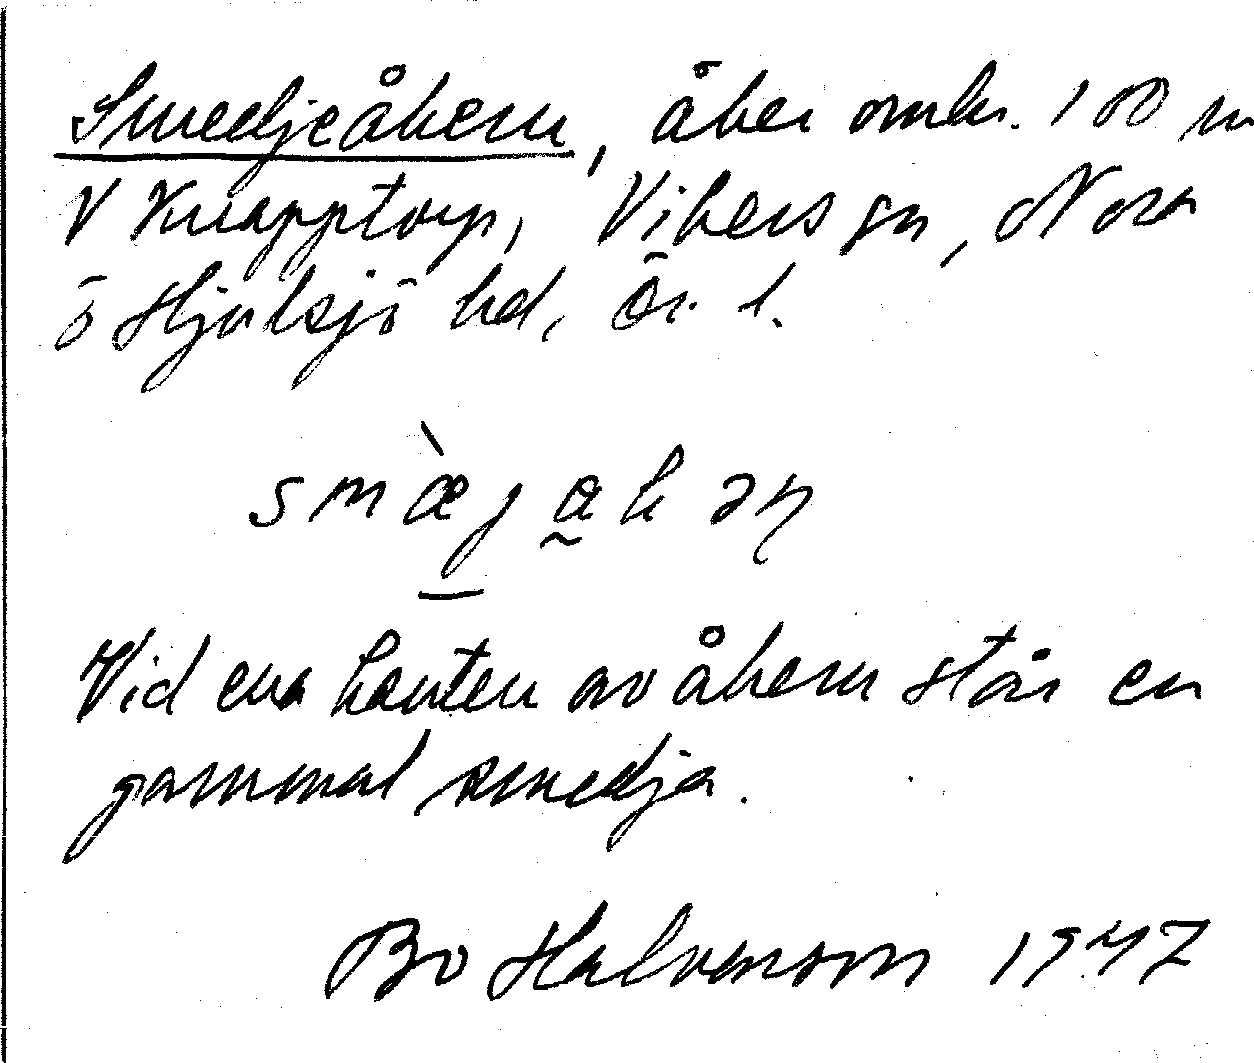 Smedjeåkern, åker omkr. 100 m
V Knapptorp, Vikers sn, Nora
o Hjulsjö bd, Ör. l.
smæ̀jakəɳ
Vid ena kanten av åkern står en
gammal smedja.
Bo Halvarson 1947